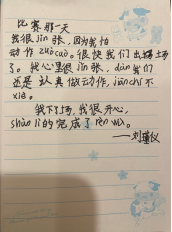 比赛那一天
我很jǐn张，因为我怕
动作zuòcuò。很快我们出场
了。我心里很jǐn张，dàn我们
还是认真做动作，jiānchí不
xiè。
我下场，我很开心，
shùn lì的完成了rèn wù。
——刘瑾仪